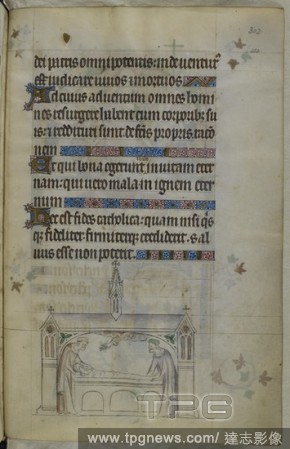 dei patris omnipotentis: inde venturus
est iudicare vivos et mortuos
Ad cuius adventum omnes homi
nes resurgere habent cum corporibus su
is: et reddituri sunt de factis propriis raco
nem
Et qui bona egerunt in vitam eter
nam: qui vero mala in ignem eter
num
Hec est fides catholica: quam nisi quis
que fideliter firmiterque crediderit: sal
vus esse non poterit
TPG
www.tpgnews.com/ 達志影像